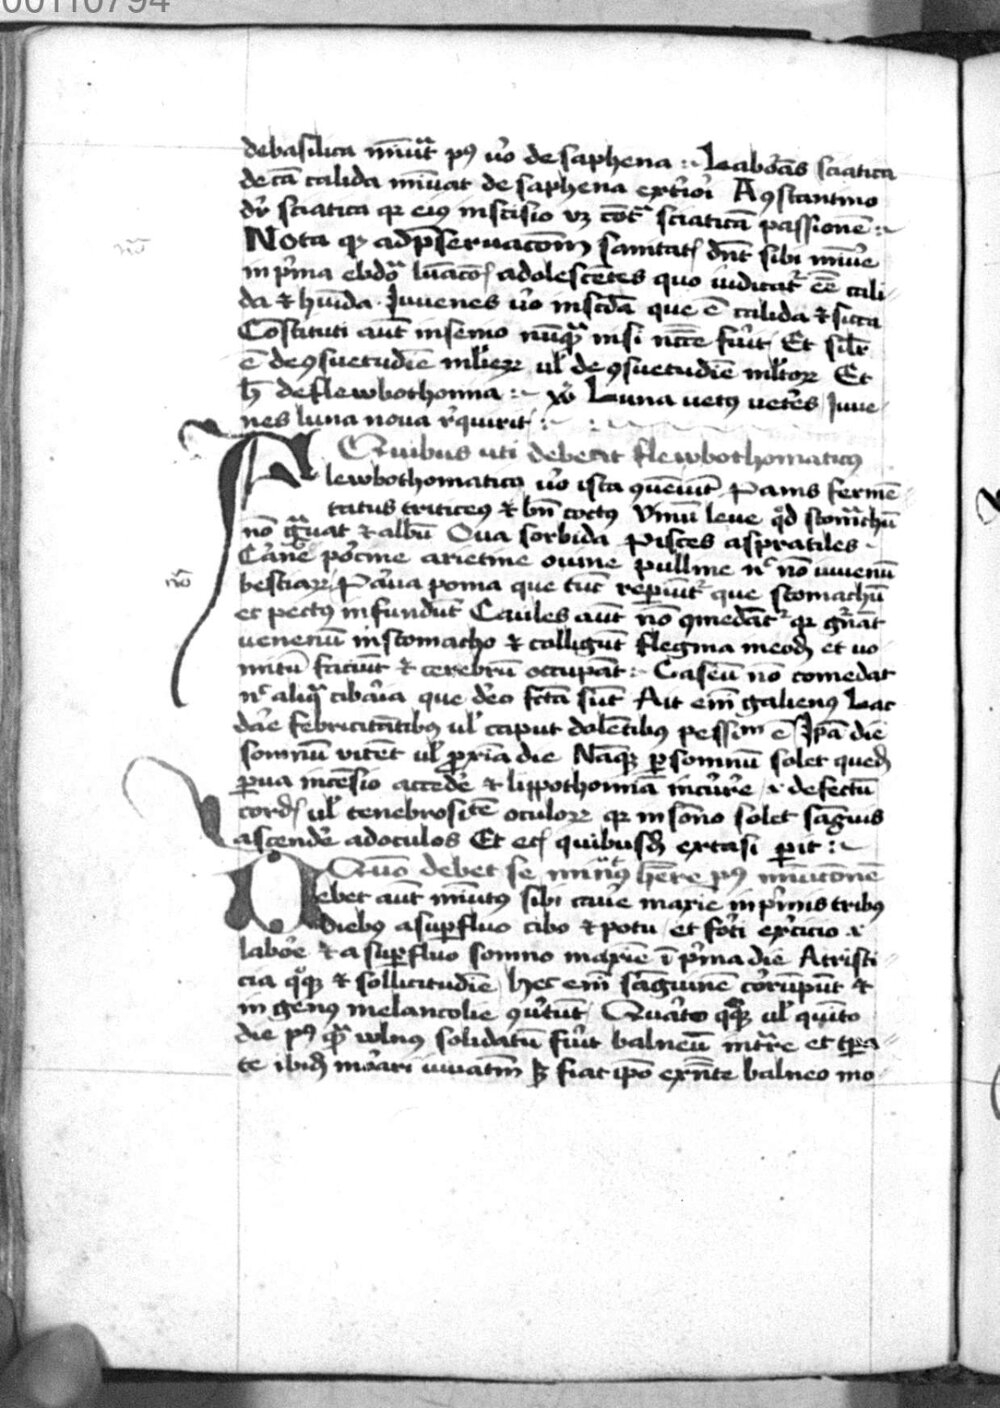 00110794
debasilica minuat̄ p9 u̓o de saphena :· Laborās sciatica
de cā calida minuat de saphena ext̓ioi̓ A 9stantino
dr̄ sciatica qr eius inscisio vz cōt̓ sciaticā passionē :~
Nota q adp̄seruacōm sanitat dn̄t sibi minu̓e
in p̓ma ebdōa lūacōe adolescētes quo iudicat̓ eē cali
da & hūida Juuenes u̓o in scd̄a que ē calida & sicca
Cōstituti aūt in senio nūq̄ nisi nccē fu̓it Et silr̄
ē de 9suetudīe mul̓ierz ul̓ de 9suetudīe ml̓torz Et
h̄ de flewbothomia :~ v̓ Luna uetus vetēs Juue
nes luna noua r̓quirit :~
Quibus uti debeat flewbothomaticus
Flewbothomatico u̓o ista 9ueniūt Panis fermē
tatus triticeus & bn̄ coctus Vinū leue qd̓ stom̄chū
nō ḡuat & albū Oua sorbida Pisces aspratiles
Carnē porcine arietine ouine pulline nc̓ nō iuuenū
bestiarz Parua poma que tūc repiūt̓ que stomachū
et pectus infundūt Caules aūt nō 9medāt̓ qr gn̓āt
uenenū in stomacho & colligūt flegma meod et uo
mitū faciūt & cerebrū occupāt :~ Caseū nō comedat
nc̓ aliq̄ cibaria que d̓eo fc̄ta sūt Ait em̄ galienus Lac
dar̓e febricitātibus ul̓ caput dolētibus pessim̄ ē Ip̄a die
somnū vitēt ul̓ p̄xīa die Nāqz p somnū solet qued
pua incēsio acced̓e & lippothomiā incur̓re & defectū
cord ul̓ tenebrositē oculorz qr in sōno solet sāguis
ascend̓e ad oculos Et ecī quibusd extasi pit :~
Quō debet se minut9 h̄ere p9 minucionē
Debet aūt minutus sibi cau̓e maxīe in p̓mis tribus
diebus a supfluo cibo & potu et fo̓ti ex̓cicio &
labor̓e & a supfluo somno maxīe ī p̓ma die A tristi
cia qq̓z & sollicitudīe hec em̄ sāguinē corūpūt &
in genus melancolie 9u̓tūt Quarto qqz ul̓ quinto
die p9 q̄ wlnus solidatū fu̓it balneū intr̄re et tpa
te ibid morari iuuatīm s fiat ip̄o exn̄te balneo mo